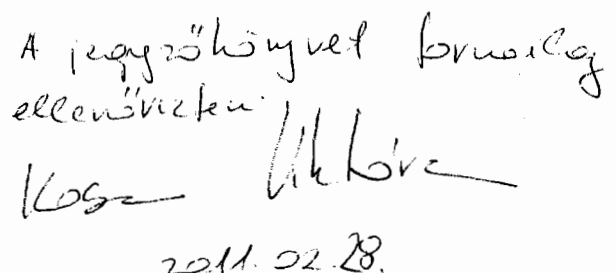 A jegyzőkönyvet formailag
ellenőriztem.
Kosa Viktória
2011.02.28.